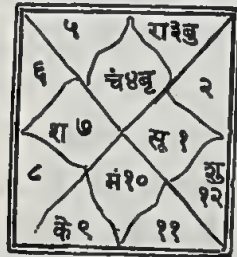 ५ रा३बु
६ चं४बृ २
श७ सू१
८ मं१० शु
१२
के९ ११